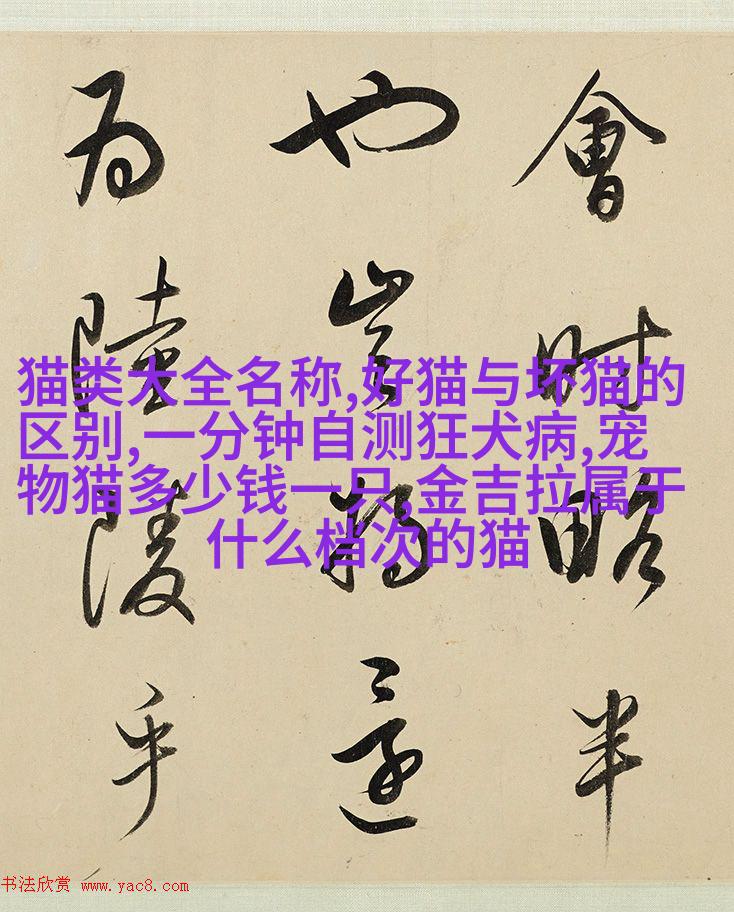 會時略半
也豈將還
為陸陵乎
猫类大全名称,好猫与坏猫的
区别,一分钟自测狂犬病,宠
物猫多少钱一只,金吉拉属于
什么档次的猫
书法欣赏 www.yac8.com